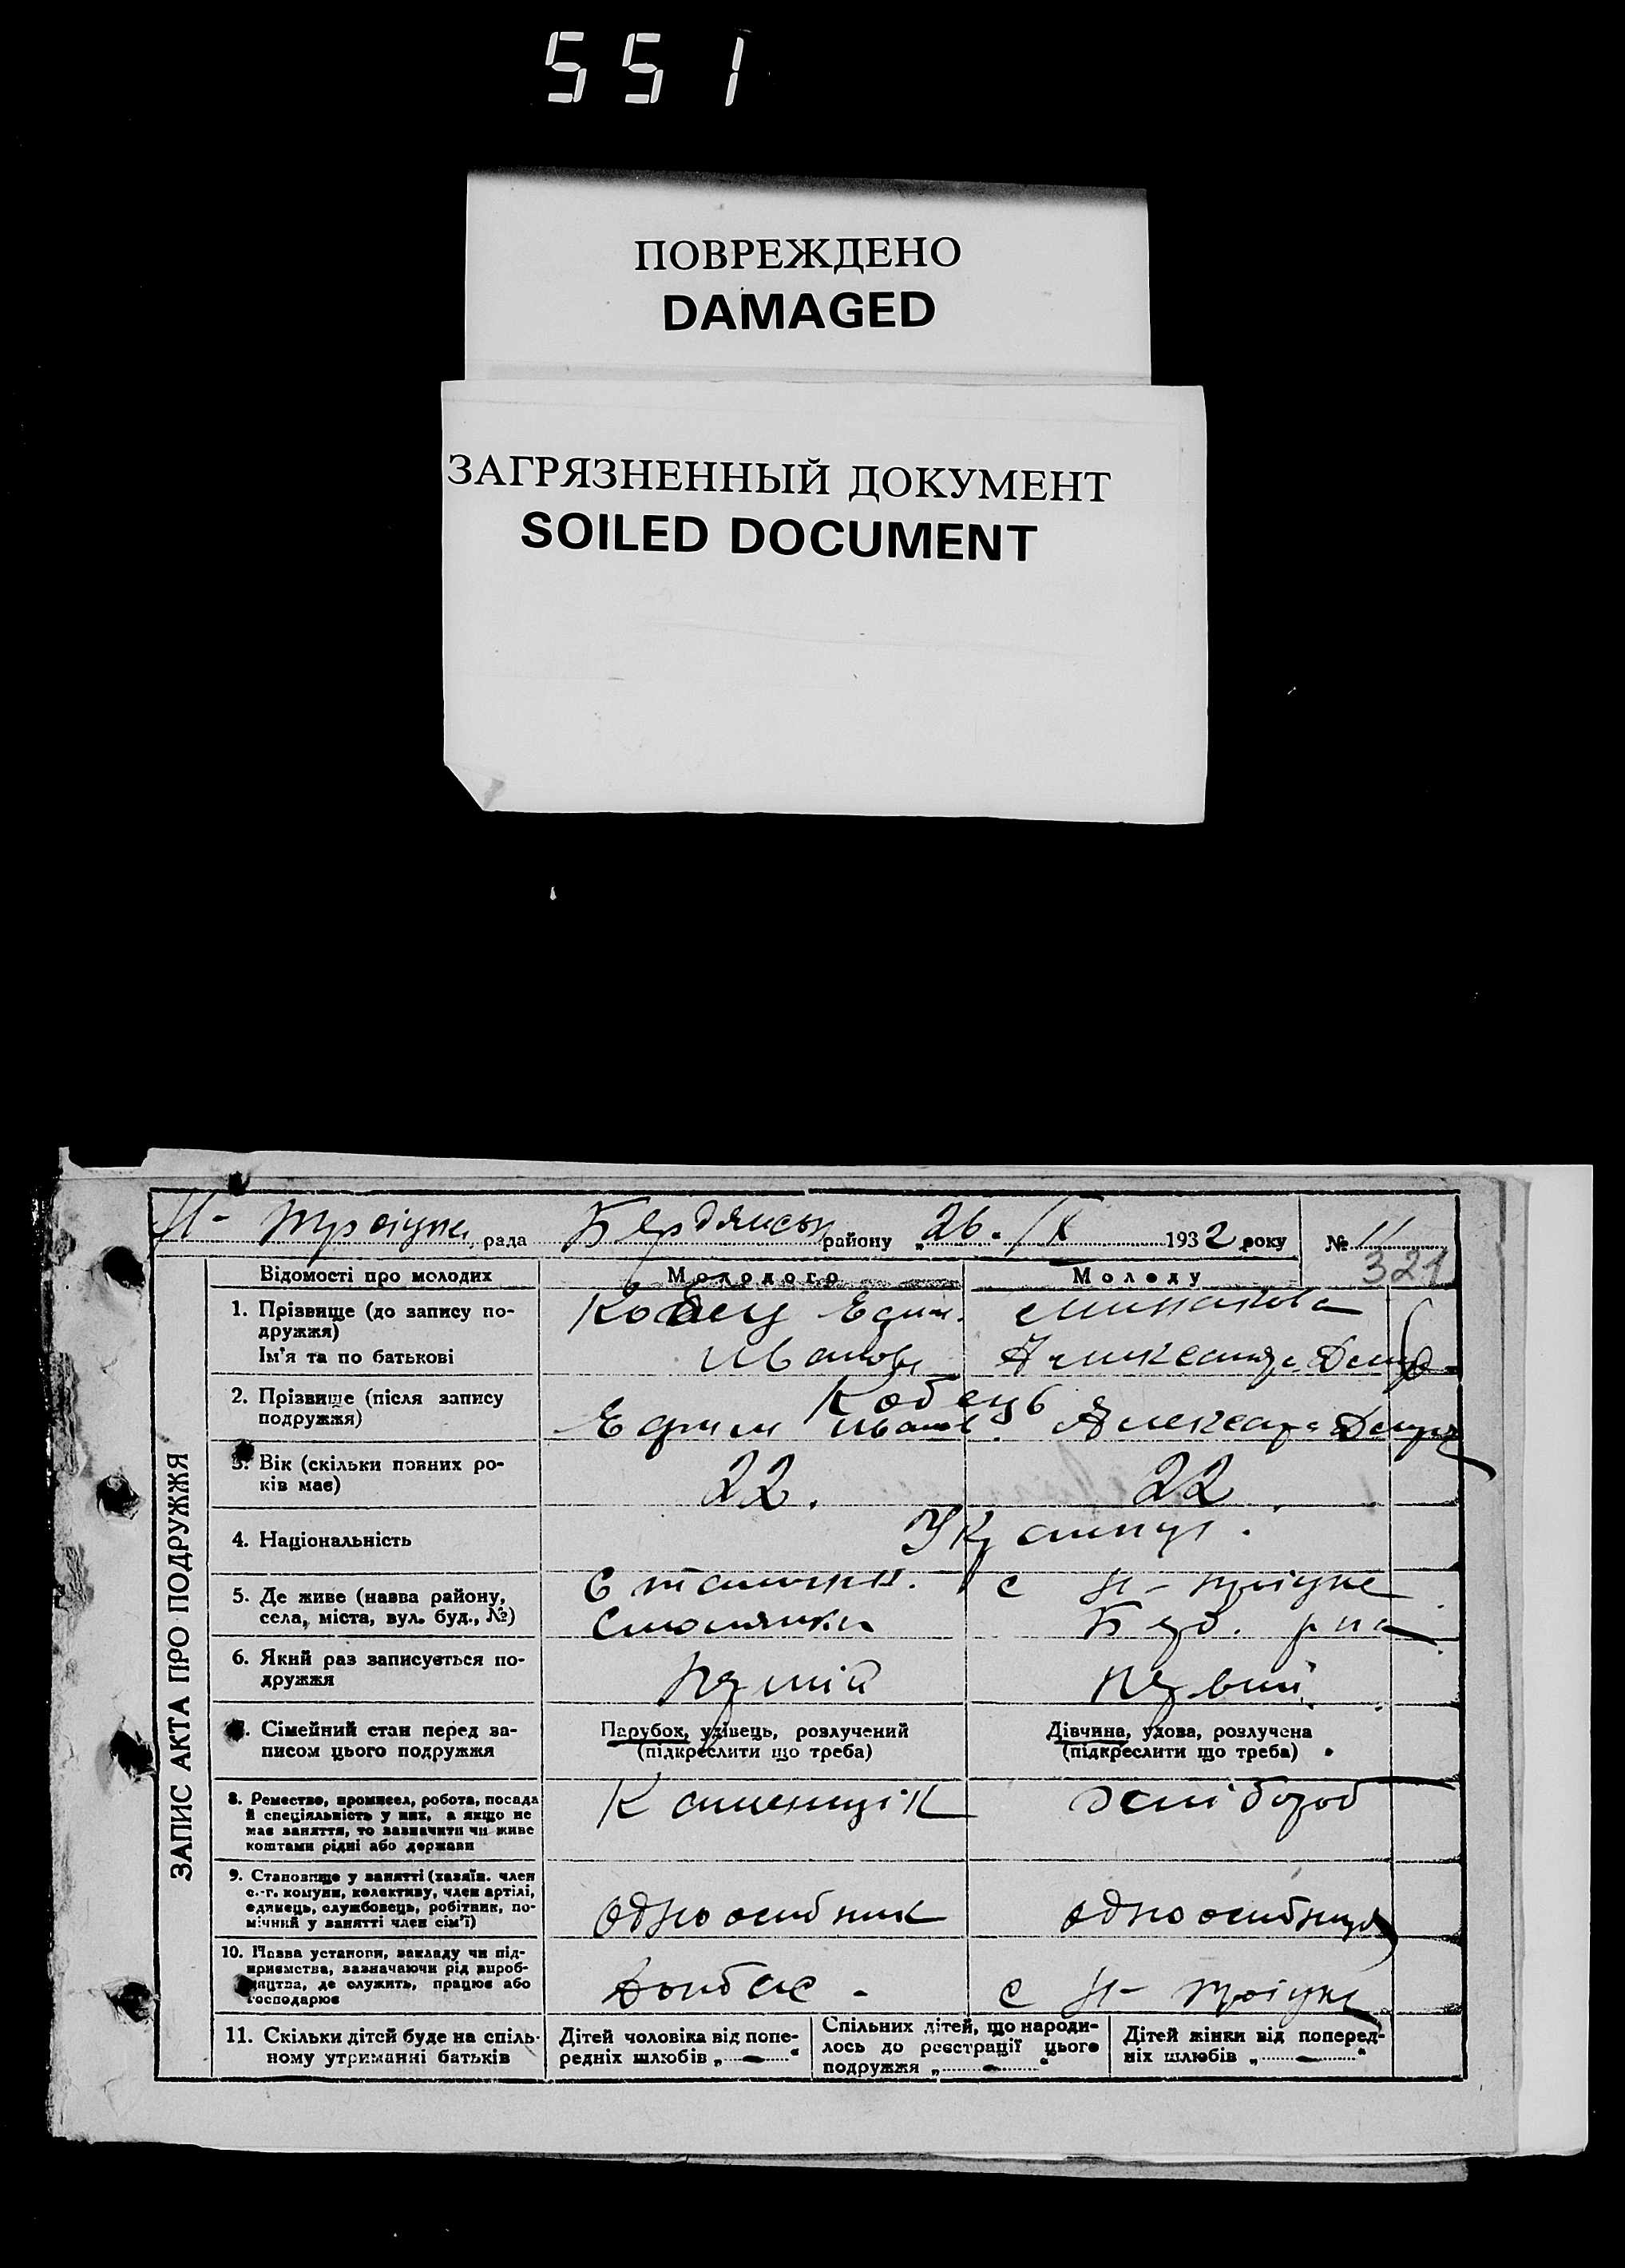 551
ПОВРЕЖДЕНО
DAMAGED
ЗАГРЯЗНЕННЫЙ ДОКУМЕНТ
SOILED DOCUMENT
Н- Троіцке, рада Бердянськ району „26. IX 1932 року № 11
321
ЗАПИС АКТА ПРО ПОДРУЖЖЯ
Відомості про молодих Молодого Молоду
1. Прізвище (до запису по-
дружжя)
Ім'я та по батькові
Кобец Ефим.
Иванов
Минакова
Александра
2. Прізвище (після запису
подружжя)
Кобець
Ефим Иванов. Александра
3. Вік (скільки повних ро-
ків має)
22. 22
4. Національність
Українці.
5. Де живе (назва району,
села, міста, вул. буд., №)
Смолянка
с Н- Троіцке
Берд. р на
6. Який раз записується по-
дружжя
Перший Первий
7. Сімейний стан перед за-
писом цього подружжя
Парубок, удівець, розлучений
(підкреслити що треба)
Дівчина, удова, розлучена
(підкреслити що треба)
8. Ремество, промисел, робота, посада
й спеціяльність у них, а якщо не
має заняття, то зазначити чи живе
коштами рідні або держави
Каменщік хлібороб
9. Становище у занятті (хазяїн. член
с.-г. комуни, колективу, член артілі,
одинець, службовець, робітник, по-
мічний у занятті член сім'ї)
одноосибник одноосибниця
10. Назва установи, закладу чи під-
приємства, зазначаючи рід вироб-
ництва, де служить, працює або
господарює
Донбас - с Н- Троіцке
11. Скільки дітей буде на спіль-
ному утриманні батьків
Дітей чоловіка від попе-
редніх шлюбів „ — “
Спільних дітей, що народи-
лось до реєстрації цього
подружжя „ — “
Дітей жінки від поперед-
ніх шлюбів „ — “